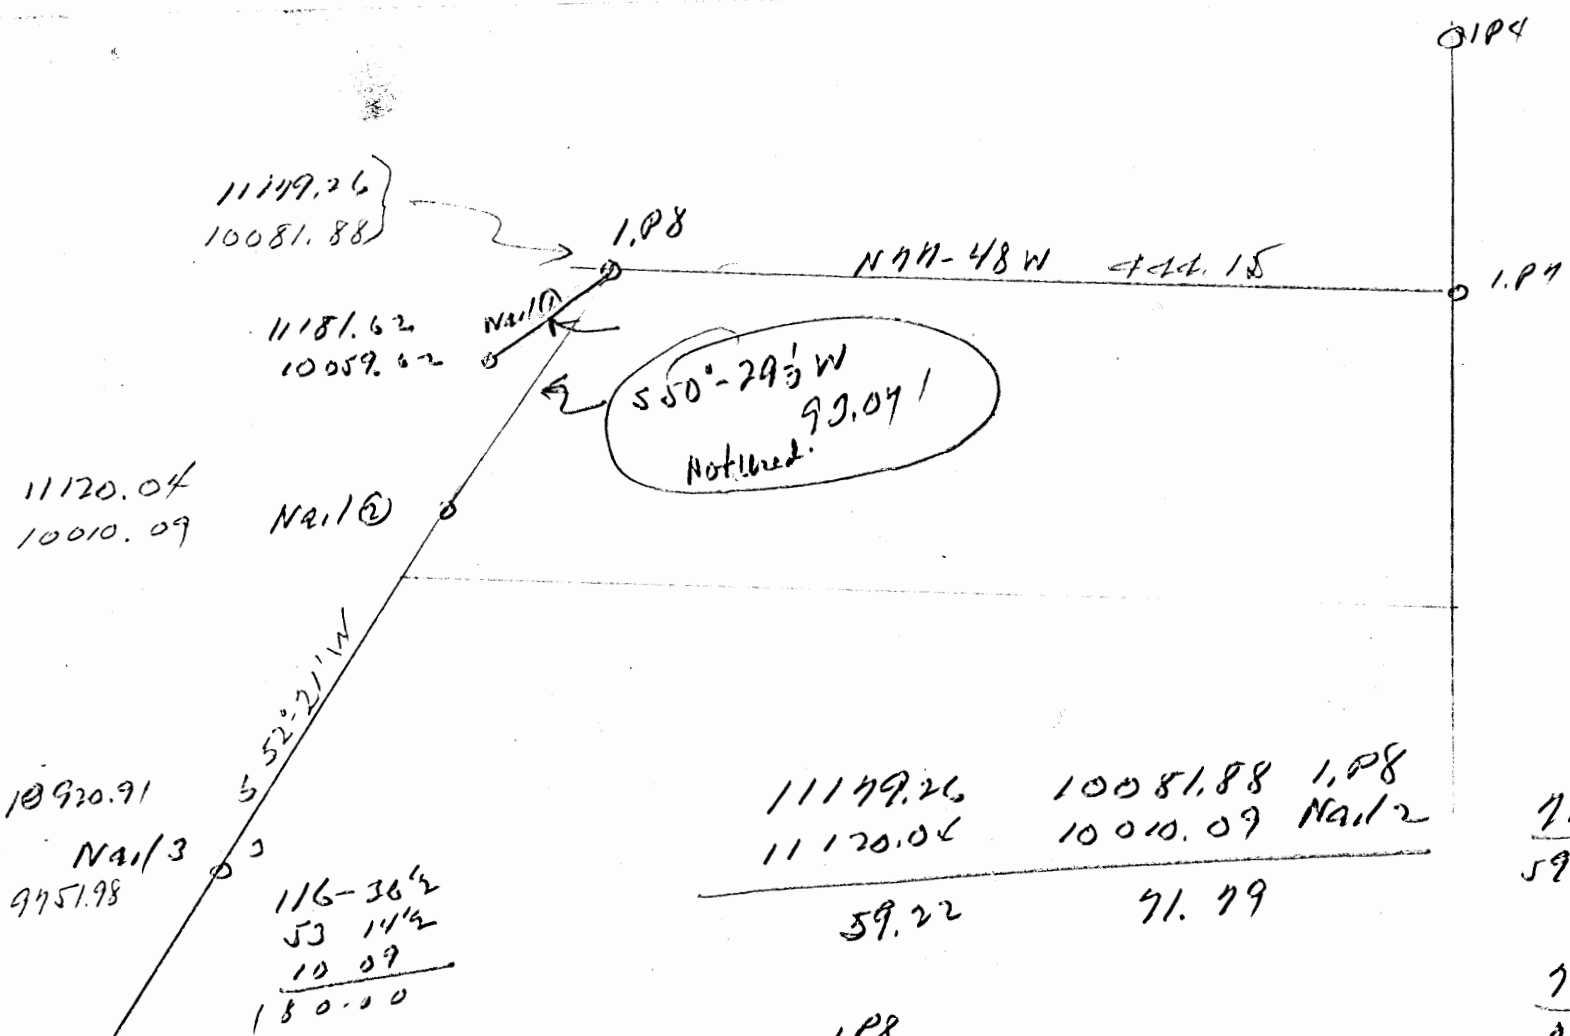 I.P4
11179.26
10081.88
I.P8
N77-48 W 444.15
I.P7
11181.62
10059.62
Nail ①
S50°-29½ W
93.07'
Not Used.
11120.04
10010.09
Nail ②
S 52°-21' W
10920.91
Nail 3
3
9751.98
116-36½
53 14½
10 09
180-00
11179.26 10081.88 I.P8
11120.04 10010.09 Nail 2
59.22 71.79
7.
59
7
I.P8